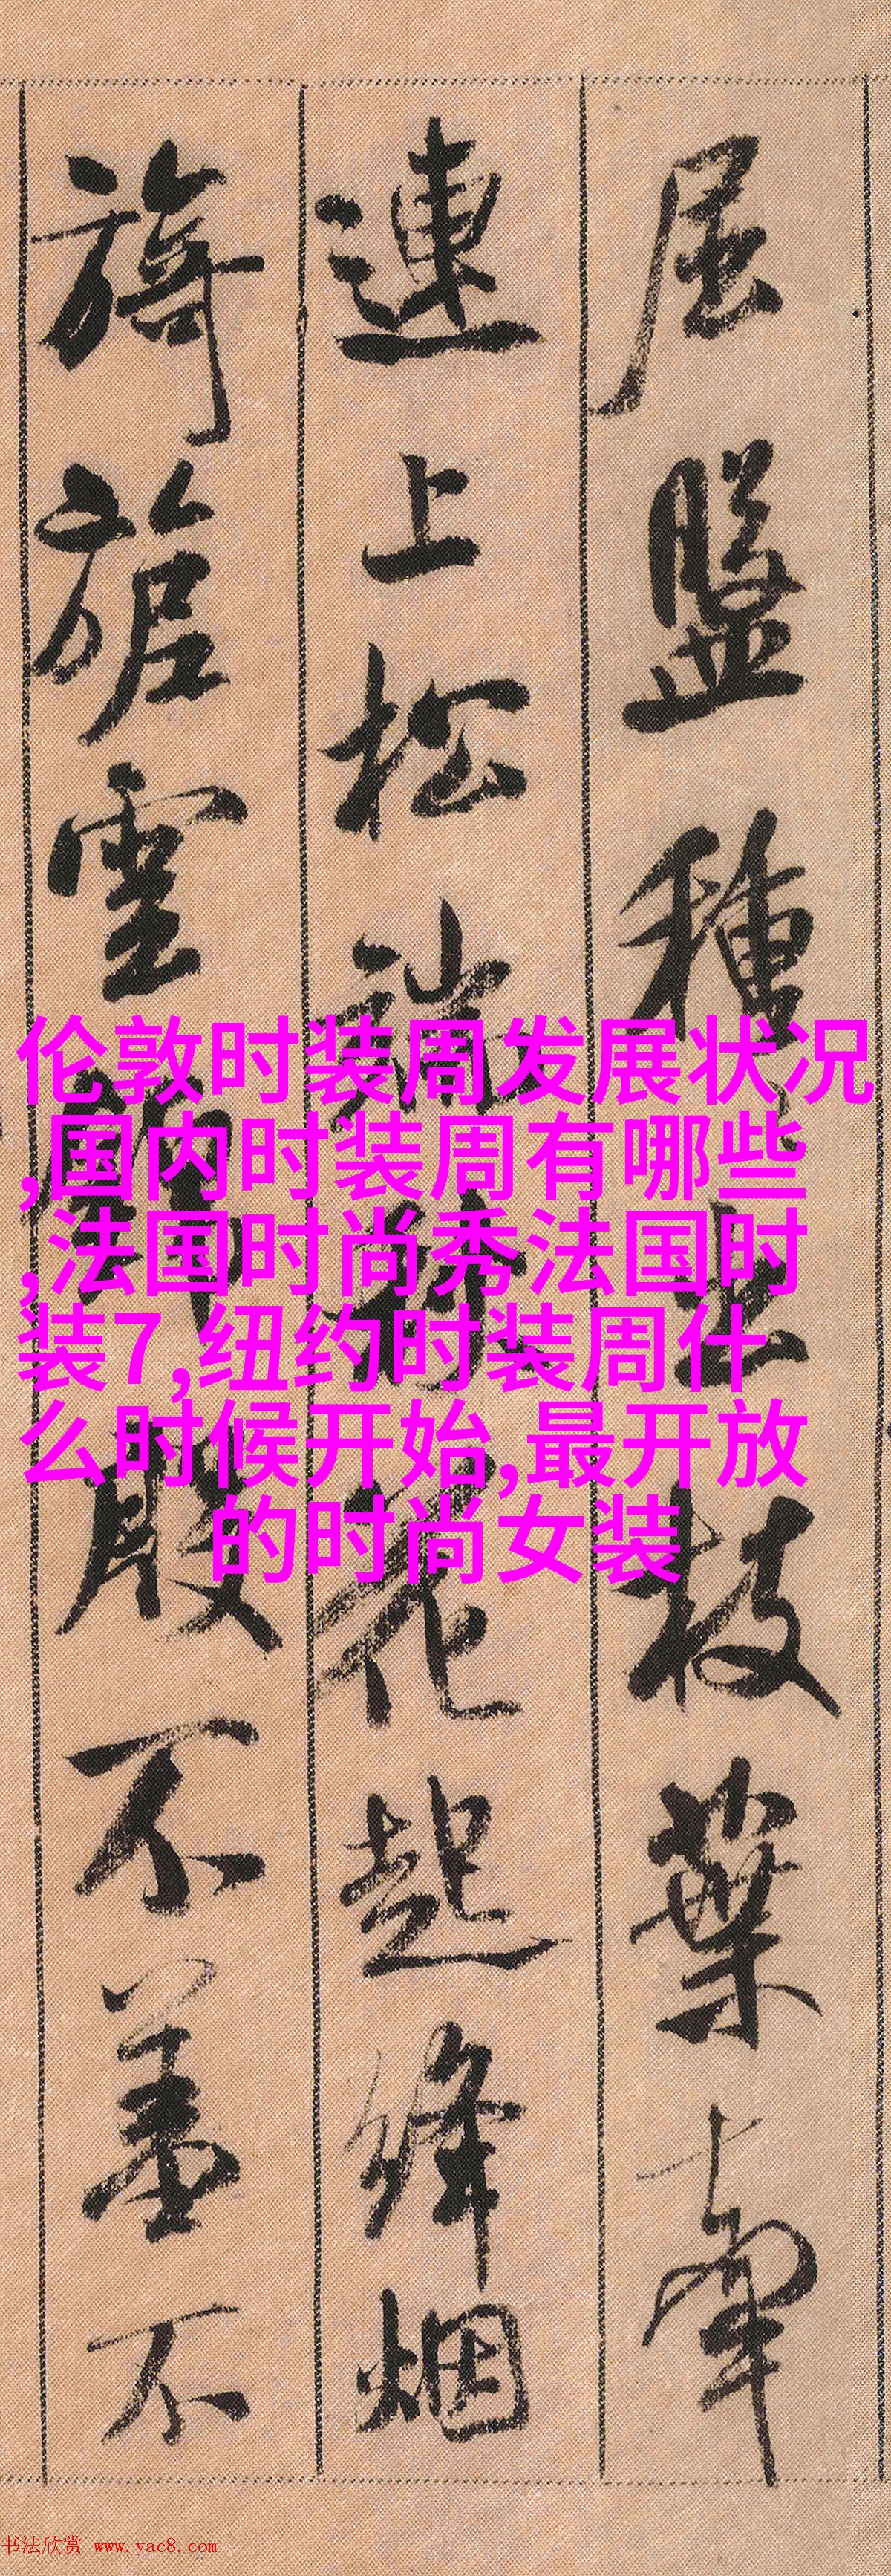 屈盤種々出枝葉牽
連上松端秋花起絳烟
旖旎雲錦殷不羞不
伦敦时装周发展状况
,国内时装周有哪些
,法国时尚秀法国时
装7,纽约时装周什
么时候开始,最开放
的时尚女装
书法欣赏 www.yac8.com